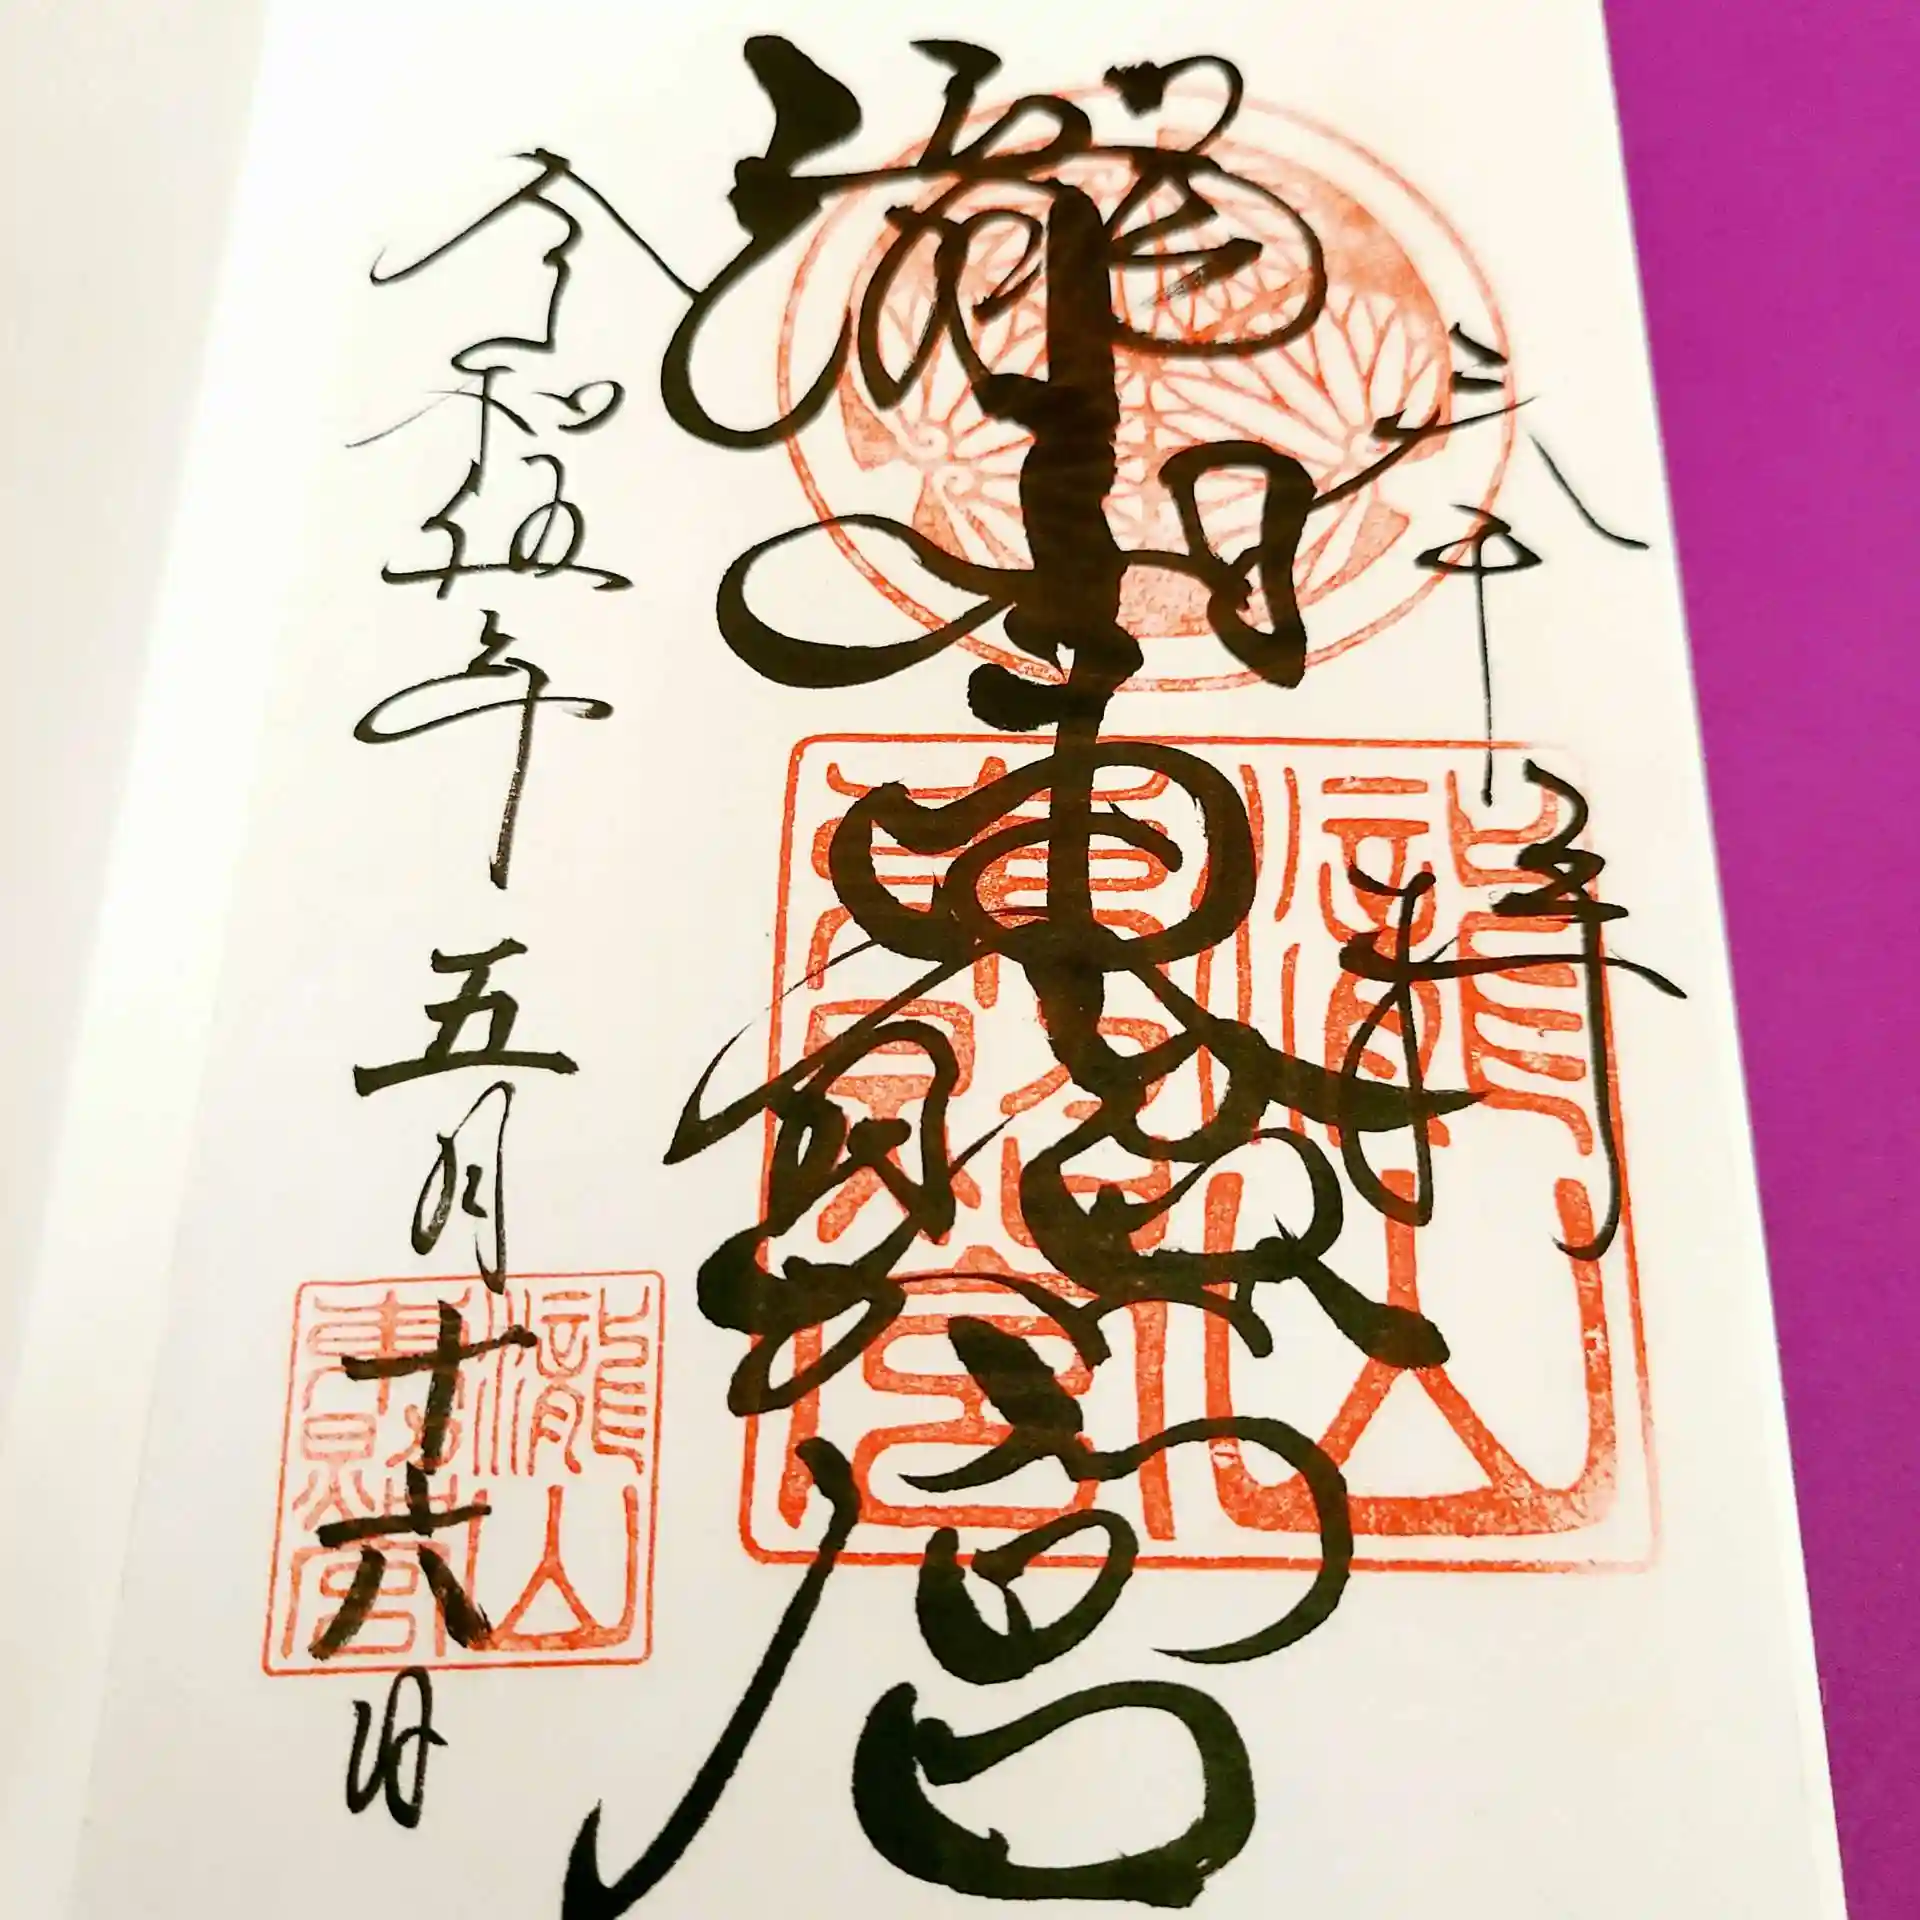 奉拝
瀧山東照宮
瀧山
東照宮
令和伍年五月十六日
瀧山
東照宮